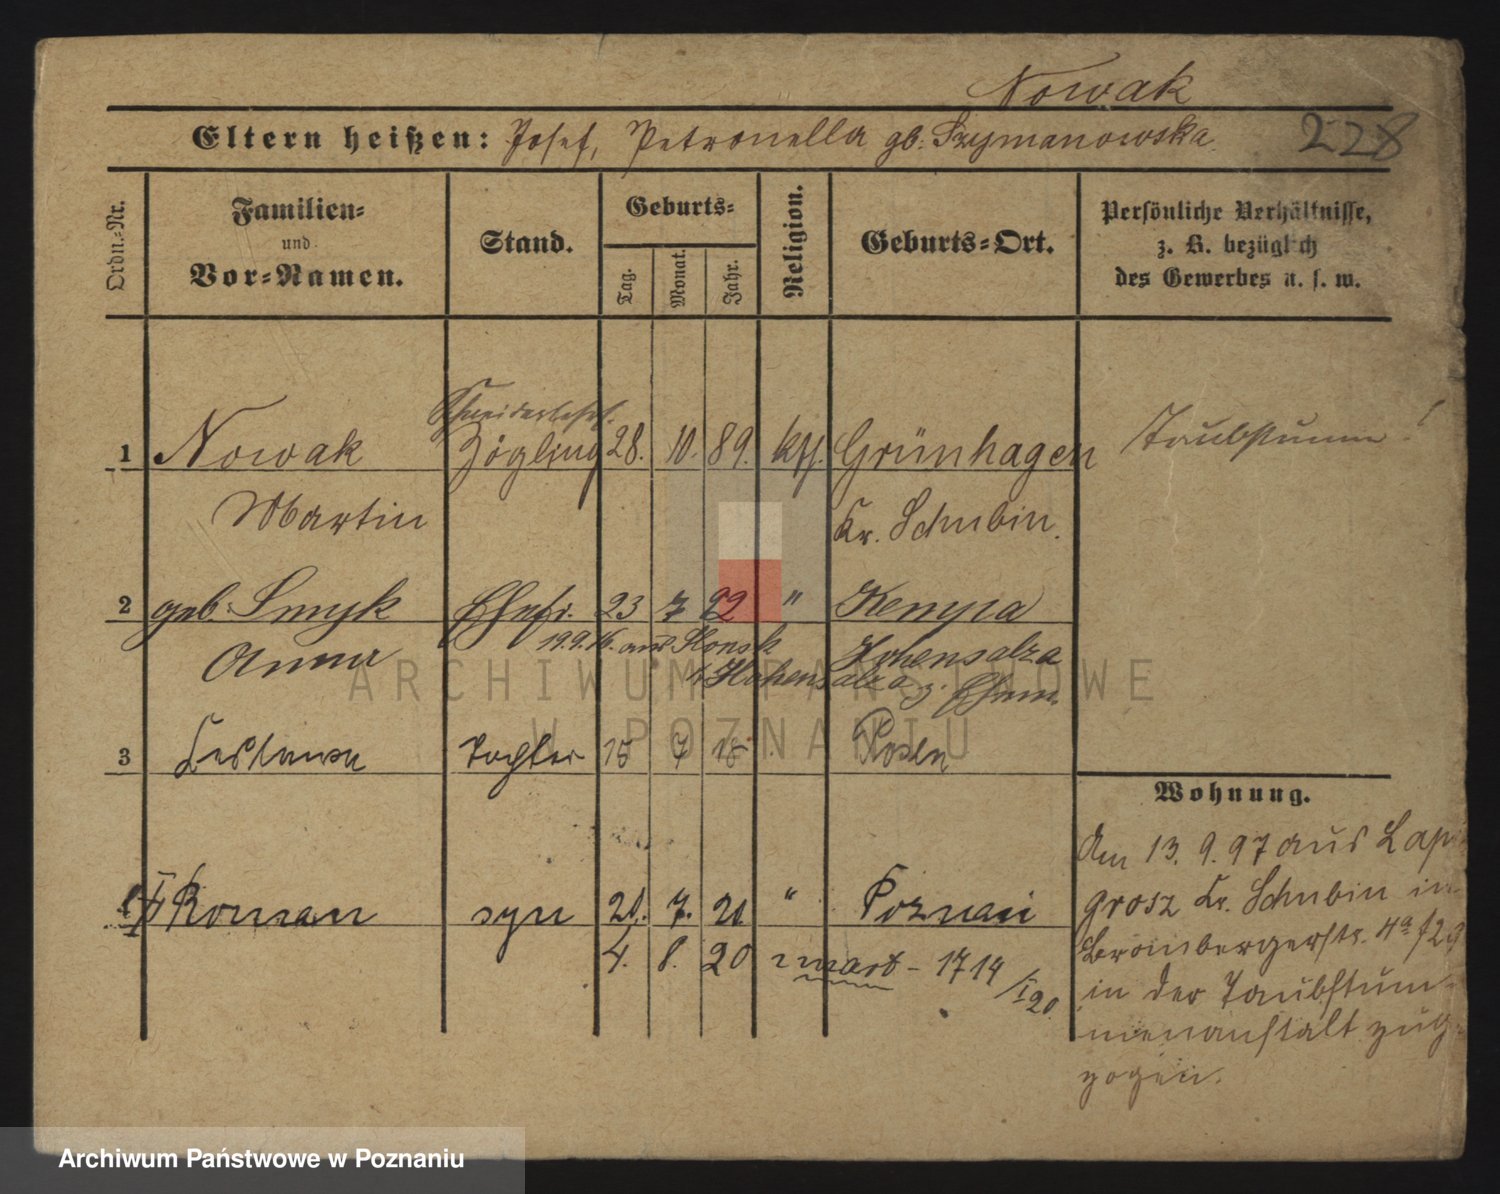 Nowak
Eltern heißen: Josef, Petronella gb. Szymanowska.
228
Ordn.-Nr.
Familien-
und
Vor-Namen.
Stand.
Geburts-
Tag.
Monat.
Jahr.
Religion.
Geburts-Ort.
Persönliche Verhältnisse,
z. B. bezüglich
des Gewerbes u. s. w.
Schneiderlehrl.
1 Nowak Zögling 28. 10. 89. kth. Grünhagen Taubstumm
Martin Kr. Schubin.
2 geb. Smyk Ehefr. 23 7 92 " Kenyia
Anna 19.9.16. aus Hohensalza
Hohensalza z. Ehem.
3 Tochter 15 7 15 Posen
Wohnung.
Am 13. 9. 97 aus Lap
4 Roman syn 21. 7. 20. " Poznań
grosz Kr. Schubin in
4. 8. 20 zmarł - 1714/I20
Brombergerstr. 4a
in der Taubstum-
menanstalt zug
zogen.
ARCHIWUM PAŃSTWOWE
W POZNANIU
Archiwum Państwowe w Poznaniu